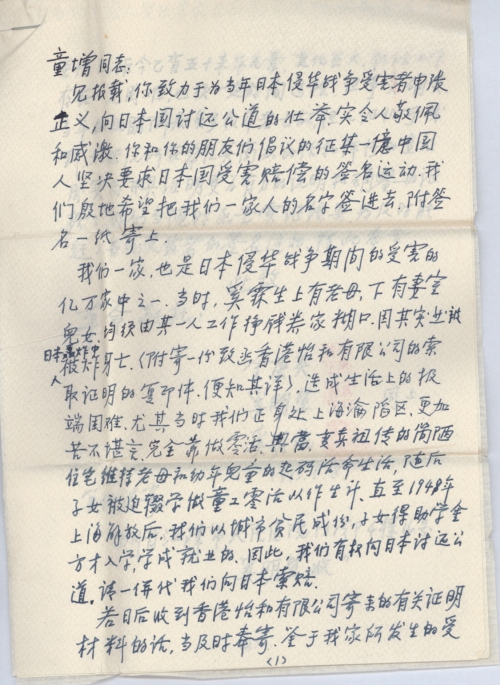 童增同志：
见报载，你致力于为当年日本侵华战争受害者申张
正义，向日本国讨还公道的壮举，实令人敬佩
和感激。你和你的朋友们倡议的征集一億中国
人坚决要求日本国受害赔偿的签名运动，我
们殷地希望把我们一家人的名字签进去，附签
名一纸寄上。
我们一家，也是日本侵华战争期间的受害的
亿万家中之一。当时，奚霖生上有老母，下有妻室
儿女，均须由其一人工作挣钱养家糊口。因其实业被
日本人
被炸歹士。（附寄一份致 香港怡和有限公司的索
取证明的复印件，便知其详），造成生活上的极
端困难。尤其当时我们正身处上海淪陷区，更加
苦不谌言，完全靠做零活、典當、变卖祖传的简陋
住宅维持老母和幼年儿童的起码活命生活，随后
子女被迫辍学做童工零活以作生计。直至1948年
上海解放后，我们以城市贫民成份，子女得助学金
方才入学，学成就业的。因此，我们有权向日本讨还公
道。请一併代我们向日本索赔。
若日后收到香港怡和有限公司寄来的有关证明
材料的话，当及时奉寄。鉴于我家所发生的受
(1)